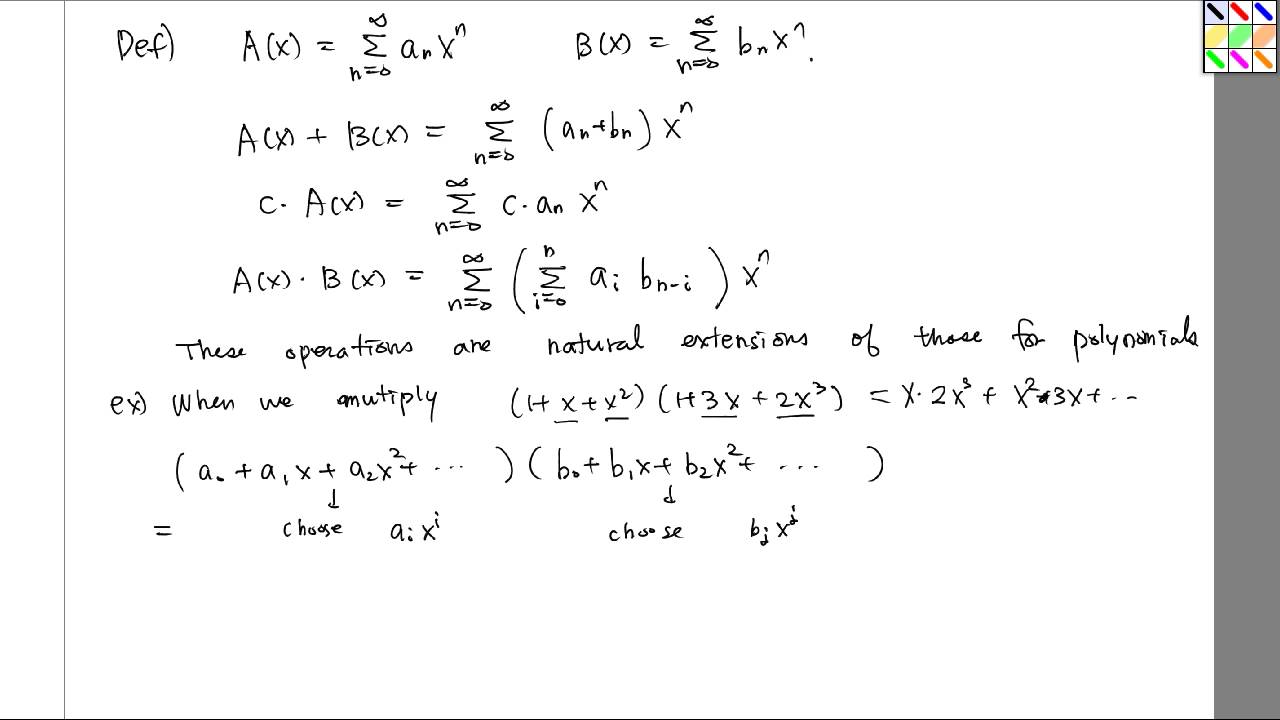 Def) A(x) = ∑_{n=0}^{∞} aₙ xⁿ B(x) = ∑_{n=0}^{∞} bₙ xⁿ.
A(x) + B(x) = ∑_{n=0}^{∞} (aₙ+bₙ) xⁿ
c · A(x) = ∑_{n=0}^{∞} c · aₙ xⁿ
A(x) · B(x) = ∑_{n=0}^{∞} ( ∑_{i=0}^{n} aᵢ b_{n-i} ) xⁿ
These operations are natural extensions of those for polynomials
ex) When we mutiply (1+ x + x²) (1+3x + 2x³) = x · 2x³ + x² · 3x + ...
( a₀ + a₁ x + a₂x² + ... ) ( b₀ + b₁ x + b₂ x² + ... )
↓ ↓
= choose aᵢ xⁱ choose bⱼ xʲ